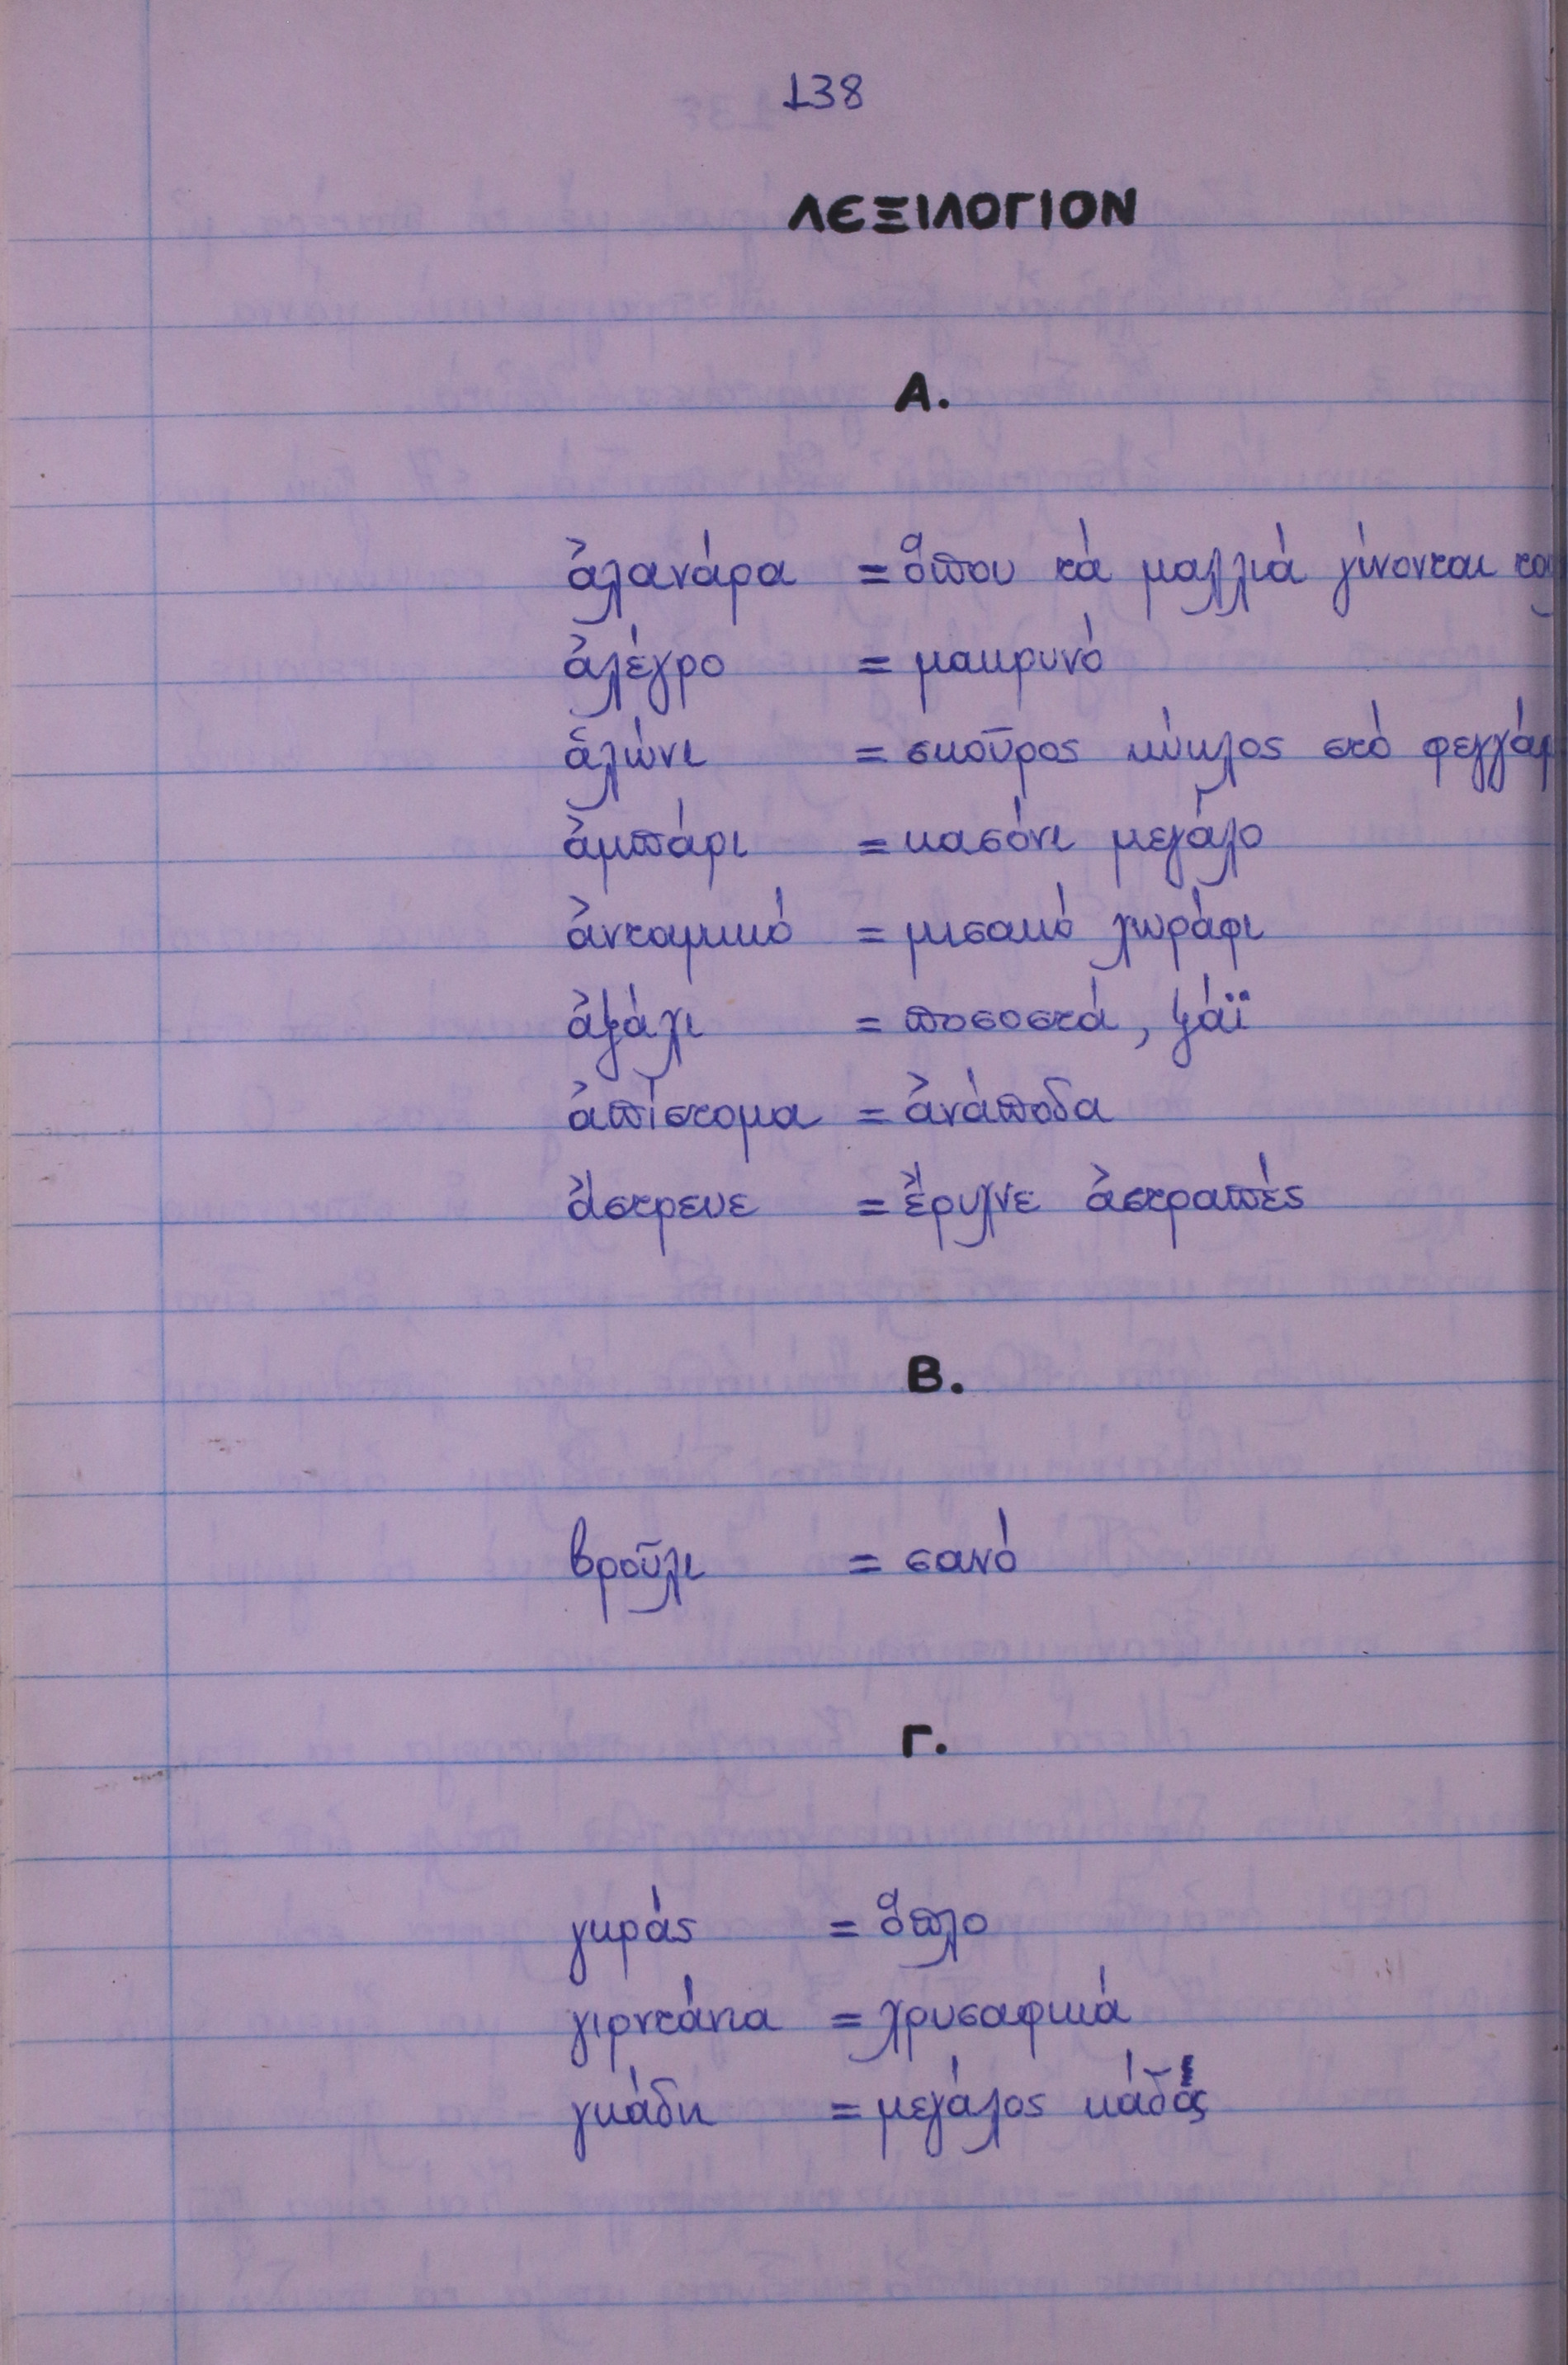 138
ΛΕΞΙΛΟΓΙΟΝ
Α.
ἀλανάρα = ὅπου τά μαλλιά γίνονται
ἀλέγρο = μακρυνό
ἁλώνι = σκοῦρος κύκλος στό
ἀμπάρι = κασόνι μεγάλο
ἀνταμικό = μισακό χωράφι
ἀξάγι = ποσοστά, ξάϊ
ἀπίστομα = ἀνάποδα
ἄστρευε = ἔριχνε ἀστραπές
Β.
βροῦλι = σανό
Γ.
γκράς = ὅπλο
γιορντάνια = χρυσαφικά
γκάδη = μεγάλος κάδος